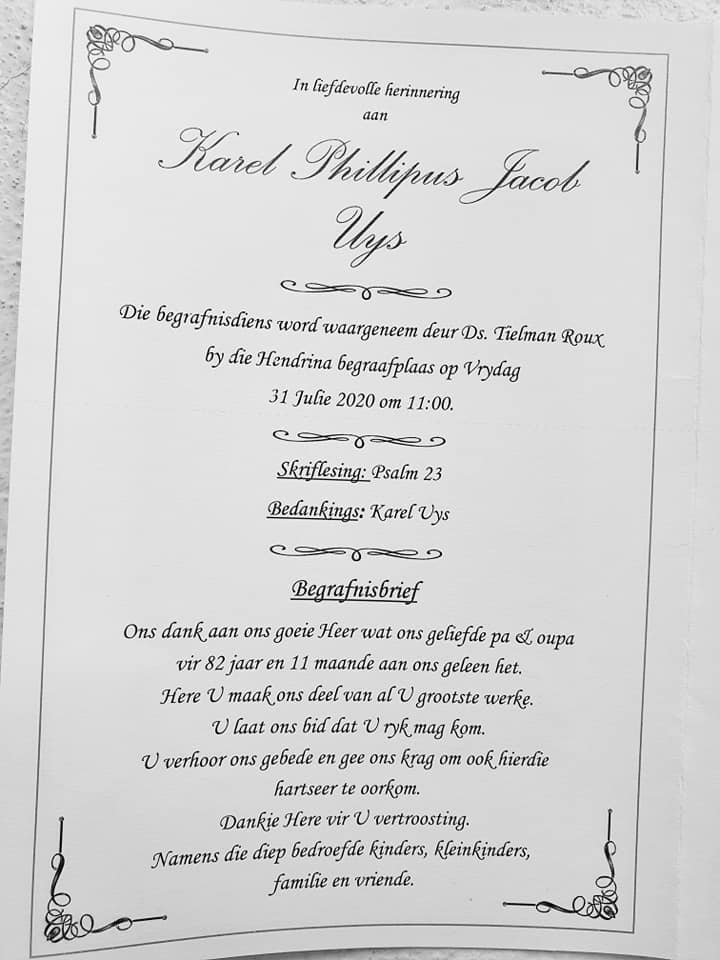 In liefdevolle herinnering
aan
Karel Phillipus Jacob
Uys
Die begrafnisdiens word waargeneem deur Ds. Tielman Roux
by die Hendrina begraafplaas op Vrydag
31 Julie 2020 om 11:00.
Skriflesing: Psalm 23
Bedankings: Karel Uys
Begrafnisbrief
Ons dank aan ons goeie Heer wat ons geliefde pa & oupa
vir 82 jaar en 11 maande aan ons geleen het.
Here U maak ons deel van al U grootste werke.
U laat ons bid dat U ryk mag kom.
U verhoor ons gebede en gee ons krag om ook hierdie
hartseer te oorkom.
Dankie Here vir U vertroosting.
Namens die diep bedroefde kinders, kleinkinders,
familie en vriende.